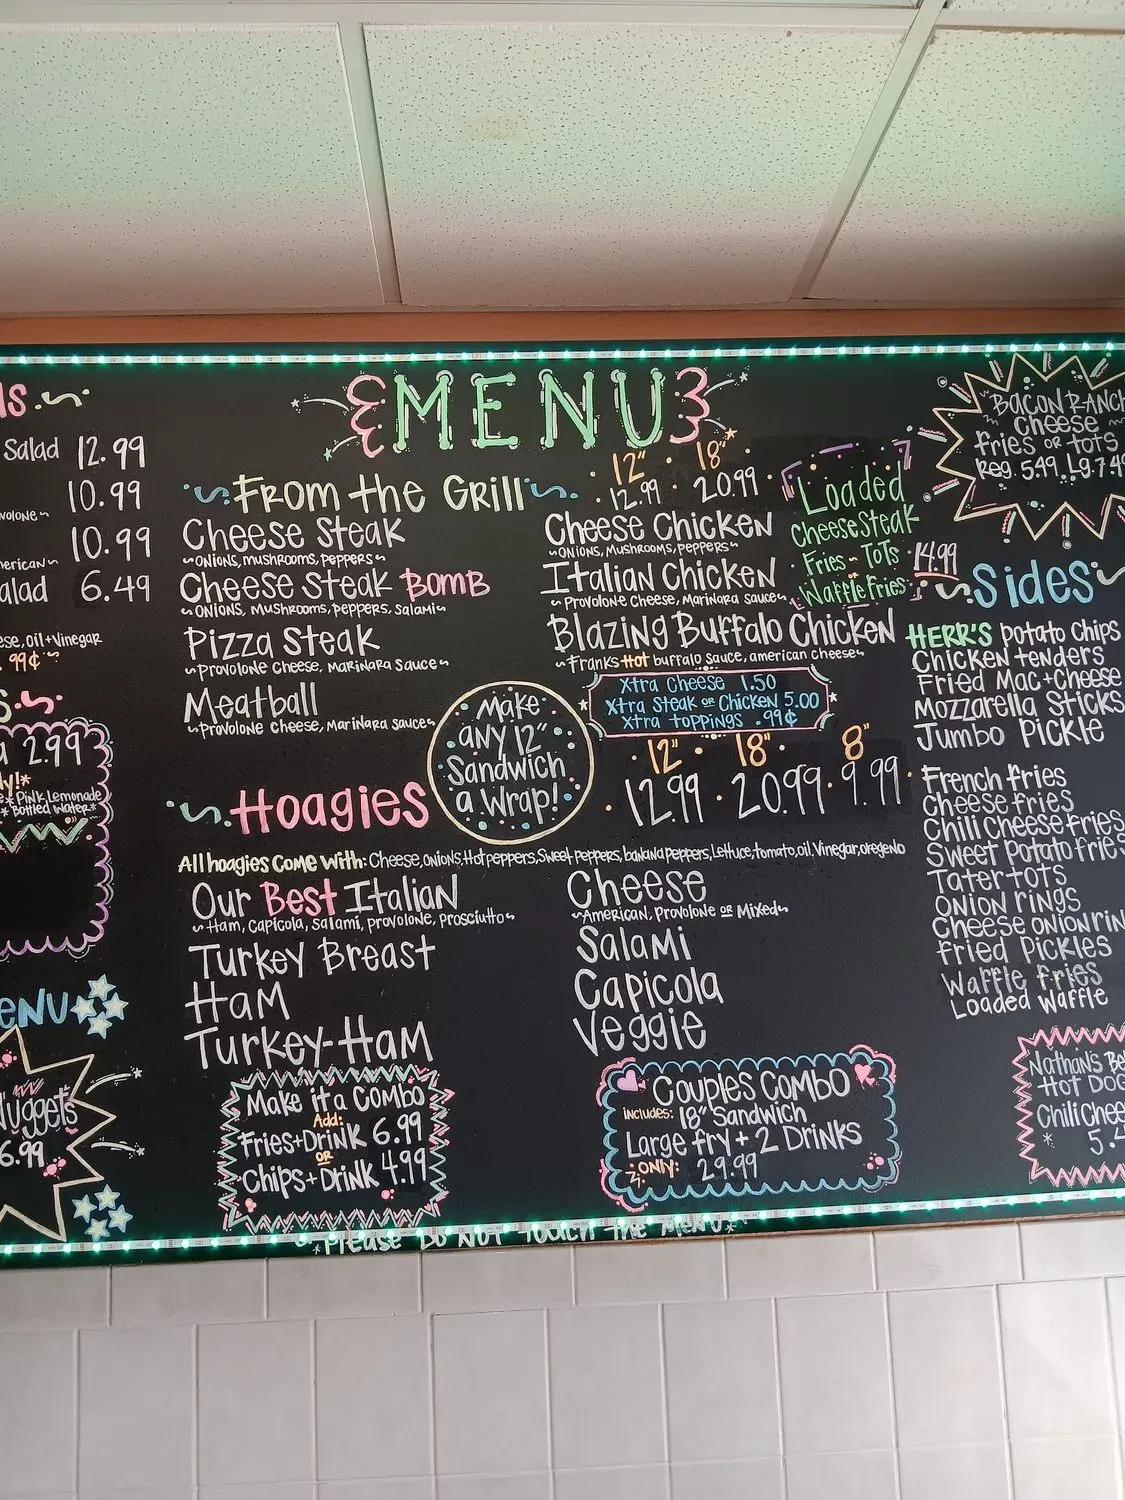 Salad 12.99
10.99
10.99
6.49
Oil+Vinegar
.99¢
2.99
Pink Lemonade
* Bottled Water*
Nuggets
6.99
MENU
From the Grill
12" 18"
12.99 20.99
Cheese Steak
~Onions, mushrooms, peppers~
Cheese Steak Bomb
~Onions, Mushrooms, peppers, salami~
Pizza Steak
~Provolone Cheese, Marinara Sauce~
Meatball
~Provolone Cheese, Marinara Sauce~
Cheese Chicken
~Onions, Mushrooms, Peppers~
Italian Chicken
~Provolone Cheese, Marinara Sauce~
Blazing Buffalo Chicken
~Franks Hot buffalo sauce, american cheese~
Xtra Cheese 1.50
Xtra Steak or Chicken 5.00
Xtra toppings .99¢
Make
any 12"
Sandwich
a Wrap!
Loaded
CheeseSteak
Fries - Tots
or
Waffle Fries
14.99
Hoagies
12" 18" 8"
12.99 20.99 9.99
All hoagies Come With: Cheese, Onions, Hot peppers, Sweet Peppers, banana Peppers, Lettuce, tomato, oil, Vinegar, oregeno
Our Best Italian
~Ham, Capicola, salami, provolone, prosciutto~
Turkey Breast
Ham
Turkey-Ham
Cheese
~American, Provolone or Mixed~
Salami
Capicola
Veggie
Make it a Combo
Add:
Fries+Drink 6.99
or
Chips+Drink 4.99
Couples Combo
includes: 18" Sandwich
Large fry + 2 Drinks
Only: 29.99
Bacon Ranch
Cheese
fries or tots
Reg. 5.49 Lg. 7.49
Sides
Herr's Potato Chips
Chicken tenders
Fried Mac+Cheese
Mozzarella Sticks
Jumbo Pickle
French fries
Cheese fries
Chili Cheese fries
Sweet Potato fries
Tater tots
Onion rings
Cheese onion rin
fried Pickles
Waffle fries
Loaded Waffle
Nathan's Be
Hot Dog
Chili Chee
* 5.4
*Please Do Not Touch The Menu*